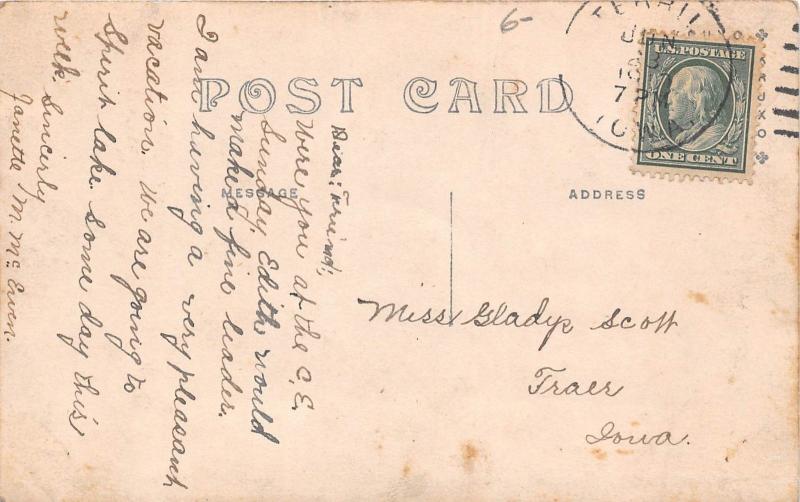 6-
POST CARD
MERRILL
JUN
7 PM
IOWA
U.S. POSTAGE
ONE CENT
MESSAGE
ADDRESS
Dear Friend;
Were you at the C.E.
Sunday Edith would
make a fine leader.
I am having a very pleasant
vacation. We are going to
Spirit lake some day this
week. Sincerly
Janette M. McEwen.
Miss Gladys Scott
Traer
Iowa.